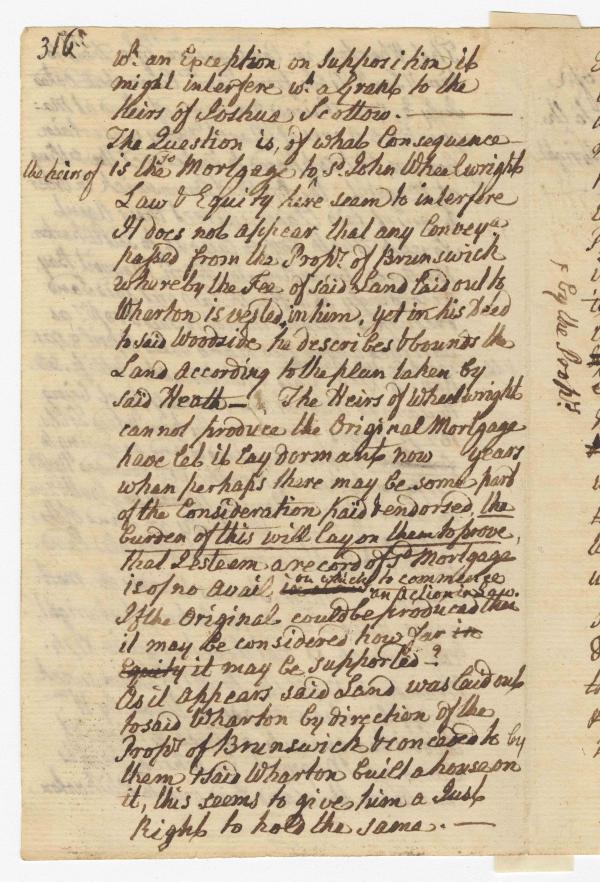 316
wh. an Exception on supposition it
might interfere wh. a Grant to the
heirs of Joshua Scottow. —
The Question is, of what Consequence
is the Mortgage to sd. John Wheelwright
the heirs of
Law & Equity here seem to interfere
It does not appear that any Conveya
passed from the Proprs. of Brunswick
whereby the Fee of said Land laid out to
Wharton is vested in him, yet in his Deed
to said Woodside he describes & bounds the
Land according to the plan taken by
said Heath — The Heirs of Wheelwright
cannot produce the Original Mortgage
have let it lay dormant now years
when perhaps there may be some part
of the Consideration paid & endorsed, the
burden of this will lay on them to prove,
that I esteem a record of sd Mortgage
is of no avail on which to commence
an Action in Law.
If the Original could be produced then
it may be considered how far in
Equity it may be supported?
As it appears said Land was laid out
to said Wharton by direction of the
Proprs of Brunswick & conceded to by
them & said Wharton built a house on
it, this seems to give him a Just
Right to hold the same. —
by the Proprs.